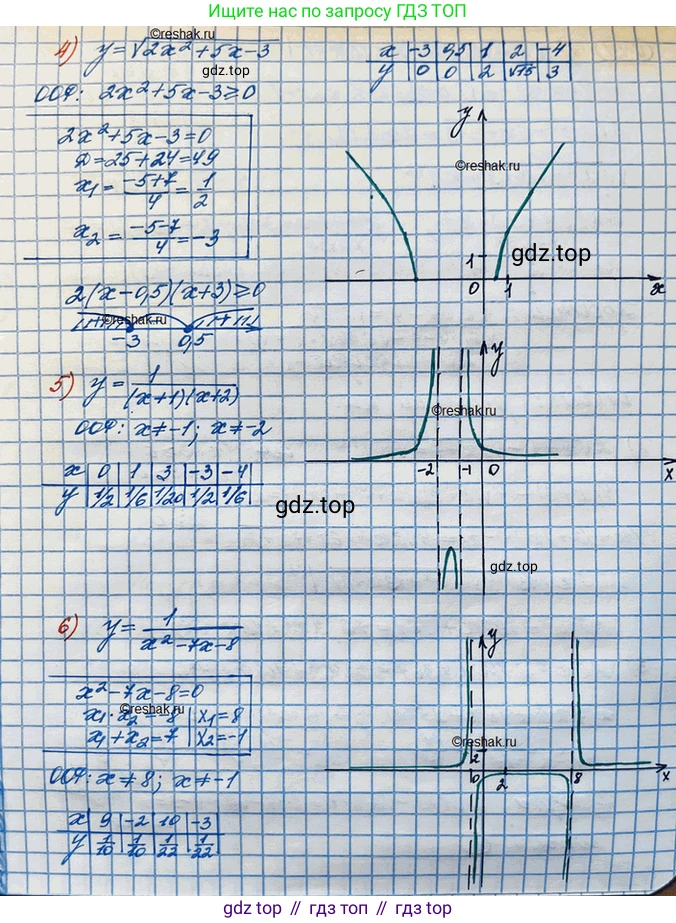 Ищите нас по запросу ГДЗ ТОП
©reshak.ru
4) y=√2x²+5x-3
gdz.top
x | -3 | 0,5 | 1 | 2 | -4
y | 0 | 0 | 2 | √15 | 3
ООФ: 2x²+5x-3≥0
2x²+5x-3=0
D=25+24=49
x₁= -5+7/4 = 1/2
x₂= -5-7/4 = -3
y
©reshak.ru
gdz.top
1
0 1 x
2(x-0,5)(x+3)≥0
©reshak.ru
-3 0,5
5) y= 1/(x+1)(x+2)
ООФ: x≠-1; x≠-2
x | 0 | 1 | 3 | -3 | -4
y | 1/2 | 1/6 | 1/20 | 1/2 | 1/6
y
©reshak.ru
-2 -1 0 x
gdz.top
gdz.top
6) y= 1/x²-7x-8
x²-7x-8=0
x₁·x₂=-8 | x₁=8
x₁+x₂=7 | x₂=-1
©reshak.ru
ООФ: x≠8; x≠-1
x | 9 | -2 | 10 | -3
y | 1/10 | 1/10 | 1/22 | 1/22
y
©reshak.ru
2
0 2 8 x
gdz.top // гдз топ // gdz.top